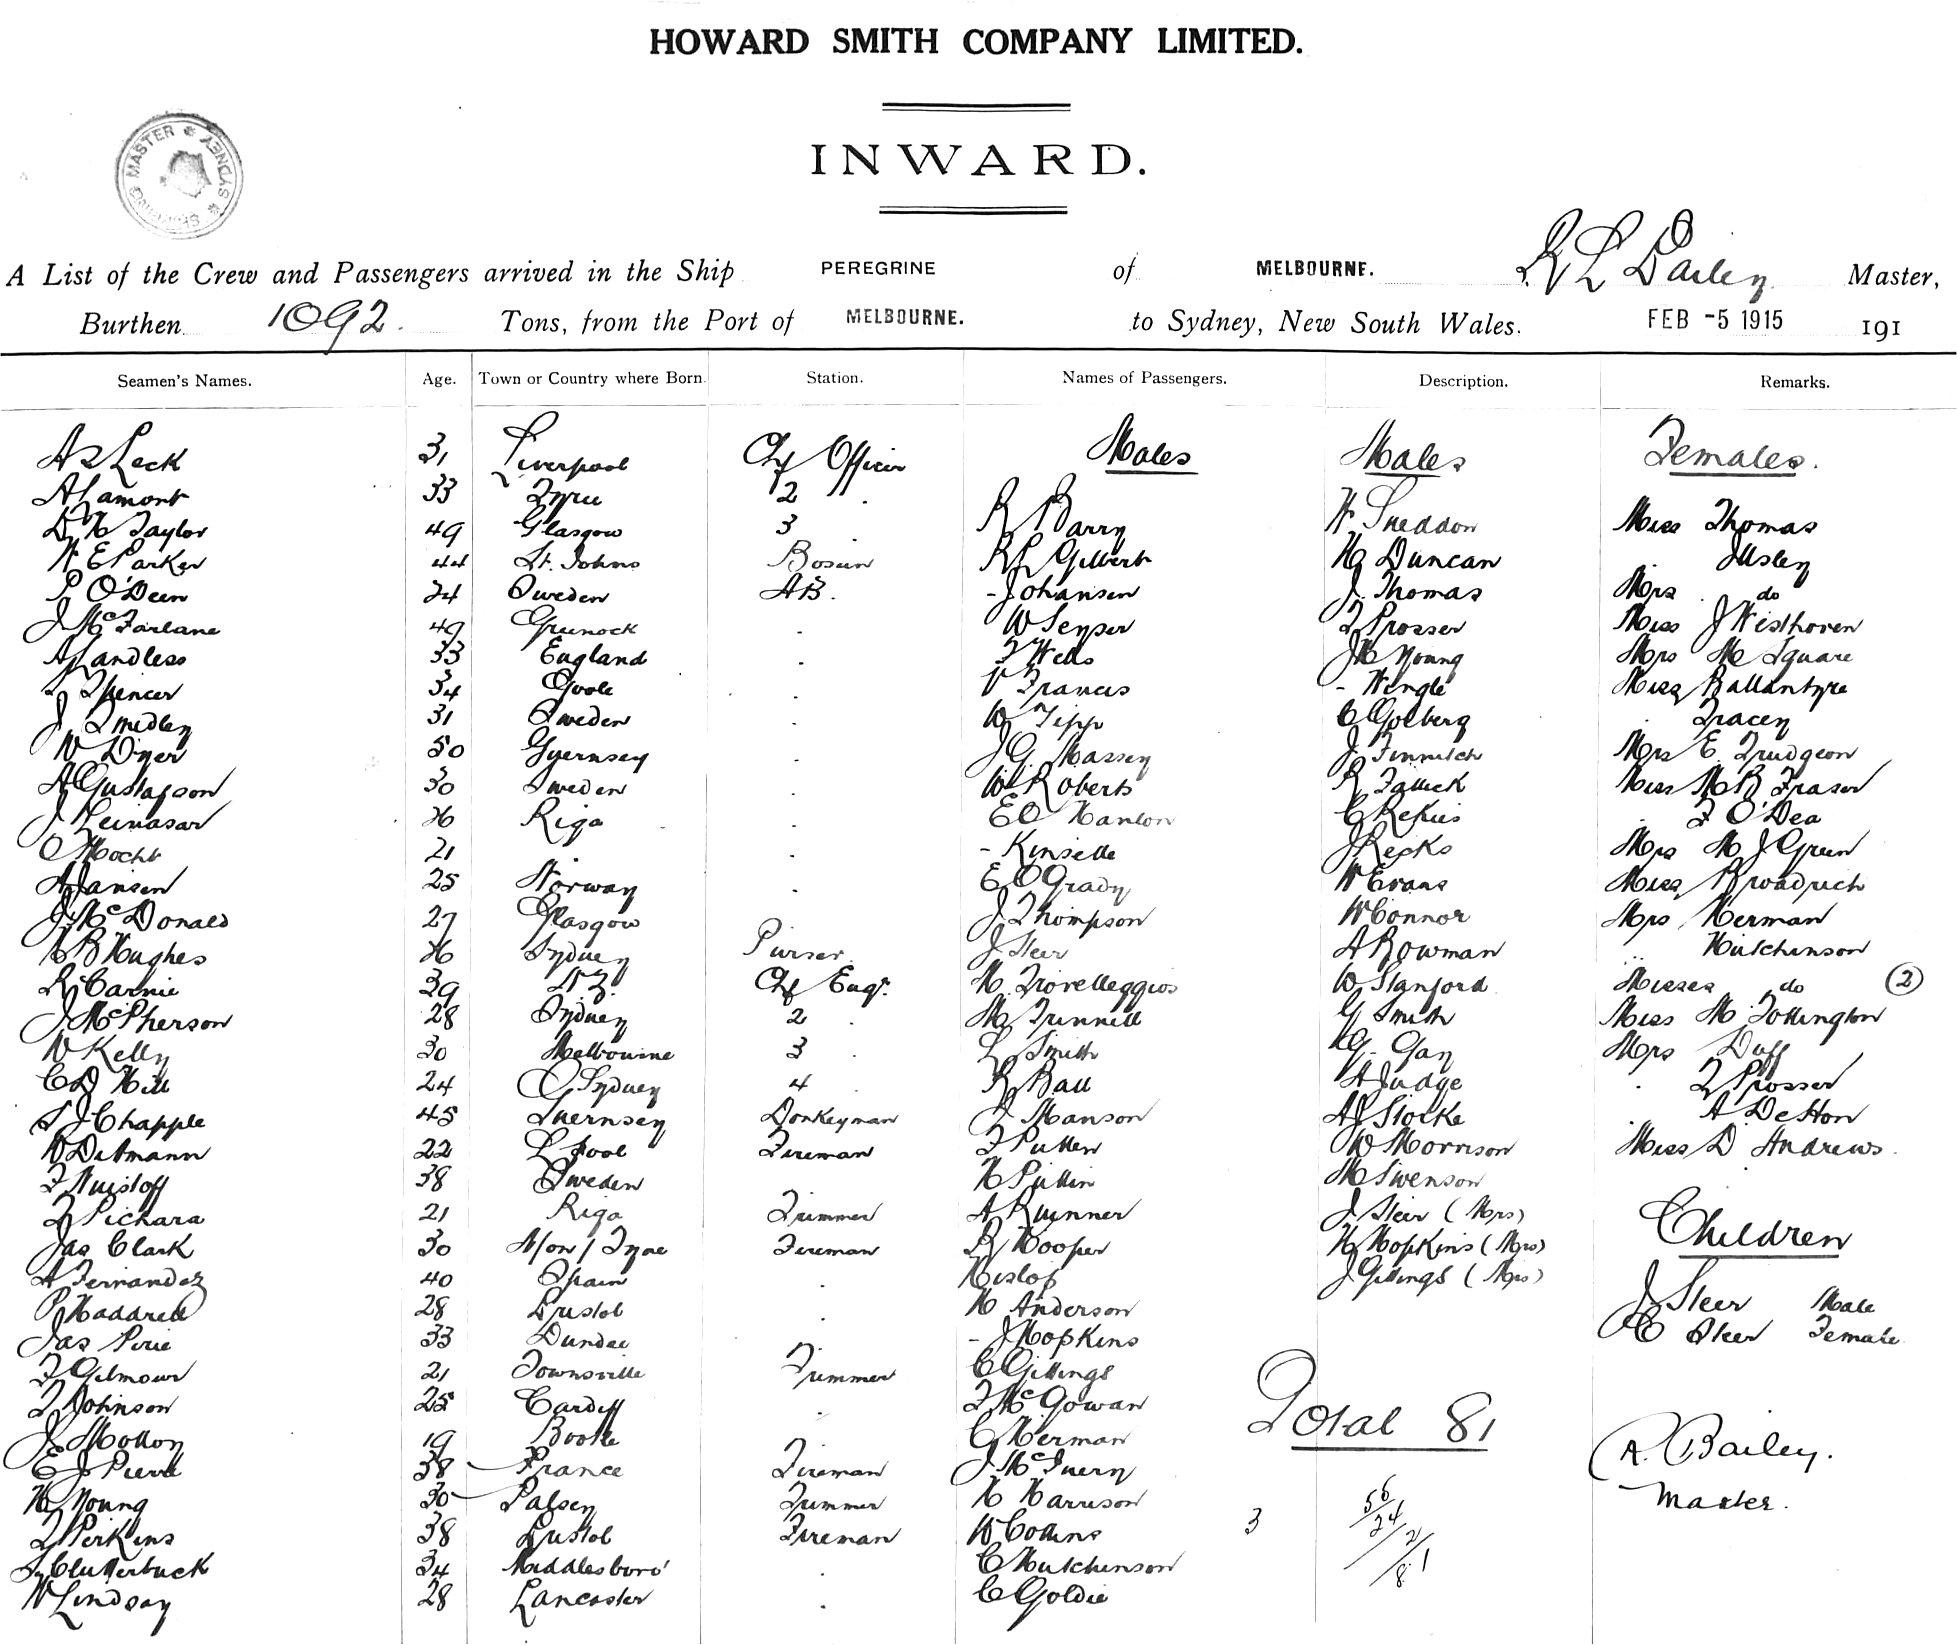 HOWARD SMITH COMPANY LIMITED.
INWARD.
MASTER SYDNEY
A List of the Crew and Passengers arrived in the Ship PEREGRINE of MELBOURNE. Bailey Master,
Burthen 1092. Tons, from the Port of MELBOURNE. to Sydney, New South Wales. FEB -5 1915 191
Seamen's Names. Age. Town or Country where Born. Station. Names of Passengers. Description. Remarks.
A L Leck 31 Liverpool Ch Officer Males Males Females.
A Lamont 33 2
D H Taylor 49 Glasgow 3 R Barry W Sneddon Miss Thomas
W E Parker 44 St. Johns Bosun R L Gilbert H Duncan Illsley
P O'Deen 24 Sweden AB. - Johansen J Thomas Mrs do
J McFarlane 49 Greenock W Seyser T Prosser Miss J Westhoven
A Landless 33 England F Wells J H Young Mrs M Square
J Spencer 34 Goole Francis - Wengle Miss Ballantyre
J Smedley 31 Sweden W Tipp C Golberg Tracey
W Dyer 50 Guernsey J G Massey J Mrs E Trudgeon
A Gustafson 30 Sweden W Roberts R Miss M B Fraser
J 26 Riga E O Hanlon C F O'Dea
O Mocht 21 - Kinselle J Recks Mrs M J Green
A Jansen 25 Norway E O Grady W Evans Miss Broadrich
J McDonald 27 Glasgow J Thompson W Connor Mrs Herman
H B Hughes 26 Sydney Purser. J Steer A Bowman Hutchinson
R Carnie 39 N Z. Ch Engr. M. W Stanford Misses do (2)
J McPherson 28 Sydney 2 M Trinnell G Smith Miss M Tollington
W Kelly 30 Melbourne 3 L Smith G. Gay Mrs Duff
C D Hill 24 Sydney 4 R Ball A Judge T Prosser
S J Chapple 45 Guernsey Donkeyman Manson A J Stocke A DeHon
W Datmann 22 L'pool Fireman F Pullen W Morrison Miss D Andrews.
F 38 Sweden H Pullin M Swenson
F Pichara 21 Riga Trimmer A J Steer (Mrs)
Jas Clark 30 N/on/Tyne Fireman R Hooper H Hopkins (Mrs) Children
A Fernandez 40 Spain Hislop J Gillings (Mrs)
P Haddrell 28 Bristol H Anderson J Steer Male
Jas Pirie 33 Dundee - J Hopkins C Steer Female
F Gilmour 21 Townsville Trimmer C Gillings
T Johnson 25 Cardiff F McGowan Total 81
J Molloy 19 Bootle C Herman A. Bailey.
E J Pierre 38 France Fireman J McInery
H Young 30 Trimmer H Harrison 56 Master.
T Perkins 38 Bristol Fireman W Collins 3 24
Clutterbuck 34 Middlesboro' C Hutchinson 2
W Lindsay 28 Lancaster C Goldie 81